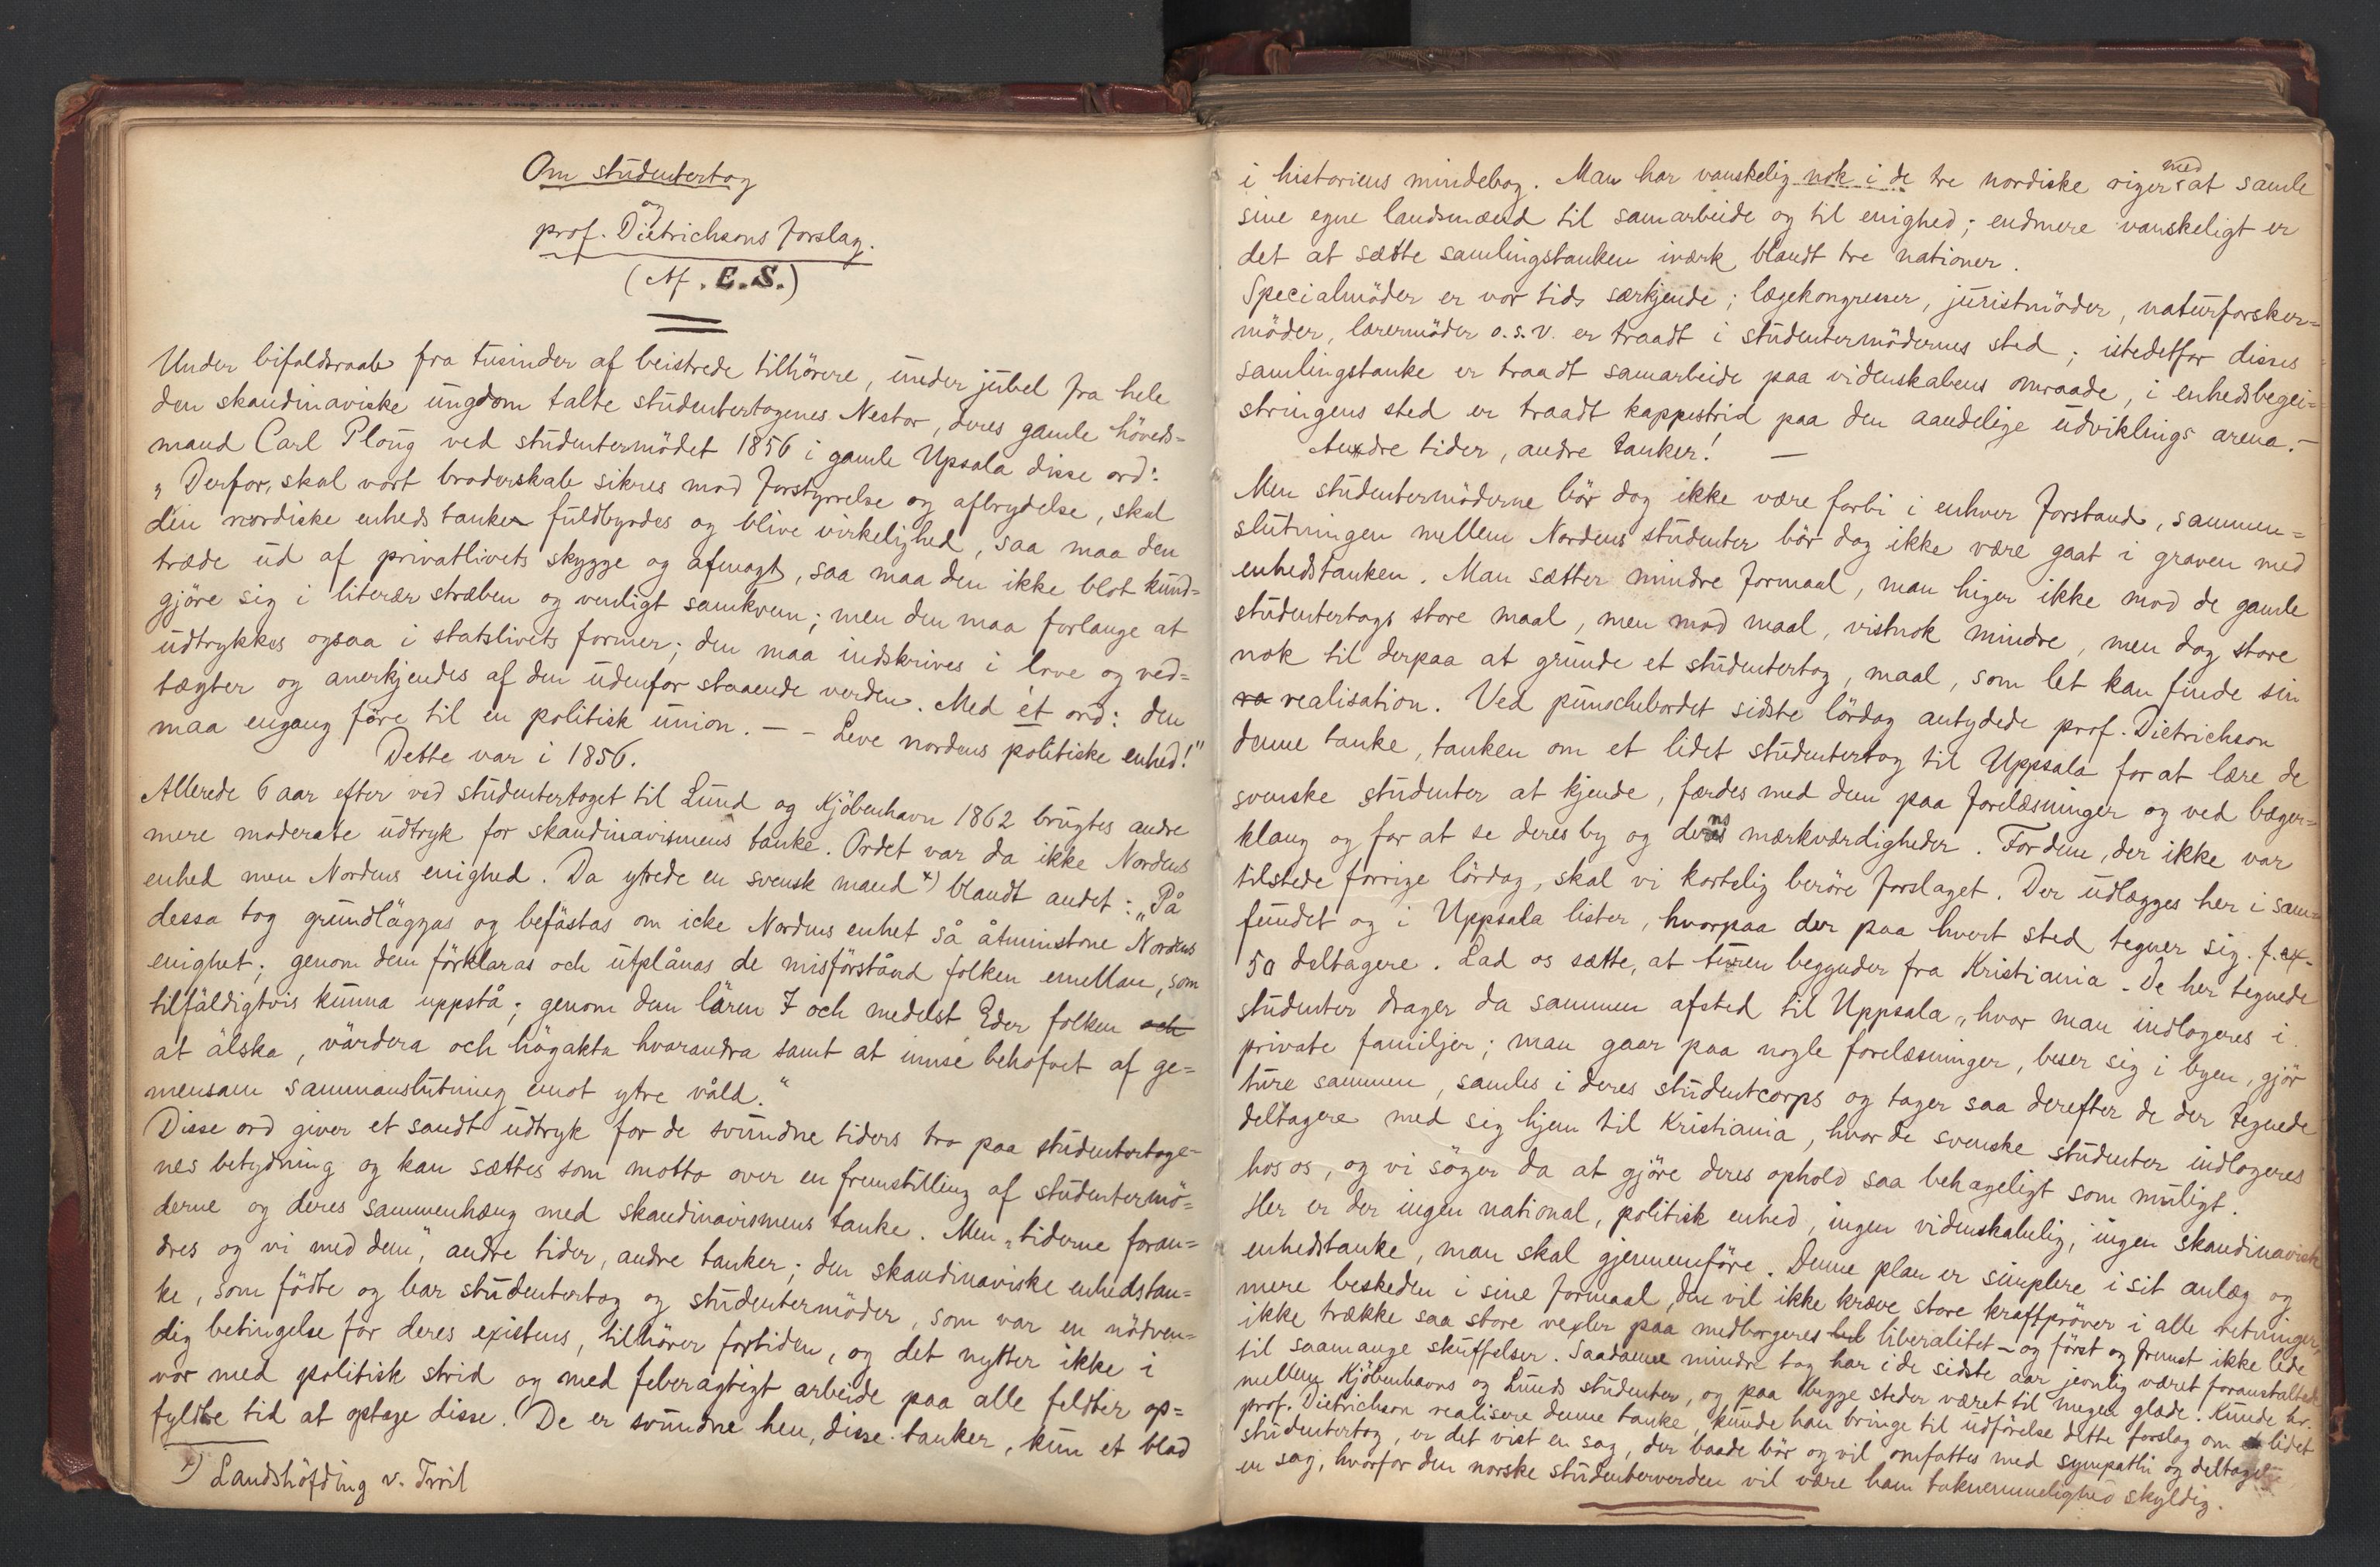 Om studentertog
og
prof. Dietrichsons Forslag.
(Af. E.S.)
Under bifaldsraab fra tusinder af beistrede tilhörere, under jubel fra hele
den skandinaviske ungdom talte studentertogenes Nestor, deres gamle höveds=
mand Carl Ploug ved studentermödet 1856 i gamle Upsala disse ord:
„Derfor, skal vort broderskab sikres mod Forstyrrelse og afbrydelse, skal
den nordiske enhedstanken fuldbyrdes og blive virkelighed, saa maa den
træde ud af privatlivets skygge og afmagt, saa maa den ikke blot kund=
gjöre sig i literær stræben og venligt samkvem; men den maa forlange at
udtrykkes ogsaa i statslivets former; den maa indskrives i love og ved=
tægter og anerkjendes af den udenfor staaende verden. Med ét ord: den
maa engang före til en politisk union. — – Leve nordens politiske enhed!"
Dette var i 1856.
Allerede 6 aar efter ved studentertoget til Lund og Kjöbenhavn 1862 brugtes andre
mere moderate udtryk for skandinavismens tanke. Ordet var da ikke Nordens
enhed men Nordens enighed. Da ytrede en svensk mand x) blandt andet: „På
dessa tog grundläggas og befästas om icke Nordens enhet så åtminstone Nordens
enighet; genom dem förklaras och utplånas de misförstånd folken emellan, som
tilfäldigtvis kunna uppstå; genom dem lären I och medelst Eder folken och
at älska, värdera och högakta hvarandra samt at inse behofvet af ge=
mensam sammanslutning emot ytre våld."
Disse ord giver et sandt udtryk for de svundne tiders tro paa studentertoge=
nes betydning og kan sættes som motto over en fremstilling af studentermö=
derne og deres sammenhæng med skandinavismens tanke. Men „tiderne foran=
dres og vi med dem", andre tider, andre tanker; den skandinaviske enhedstan=
ke, som födte og bar studentertog og studentermöder, som var en nödven=
dig betingelse for deres existens, tilhörer fortiden, og det nytter ikke i
vor med politisk strid og med feberagtigt arbeide paa alle feldter op=
fyldte tid at optage disse. De er svundne hen, disse tanker, kun et blad
x) Landshöfding v. Troil
i historiens mindebog. Man har vanskelig nok i de tre nordiske riger med at samle
sine egne landsmænd til samarbeide og til enighed; endmere vanskeligt er
det at sætte samlingstanken iværk blandt tre nationer.
Specialmöder er vor tids særkjende; lægekongresser, juristmöder, naturforsker=
möder, lærermöder o.s.v. er traadt i studentermödernes sted; istedetfor disses
samlingstanke er traadt samarbeide paa videnskabens omraade, i enhedsbegei=
stringens sted er traadt kappestrid paa den aandelige udviklings arena. –
Andre tider, andre tanker! —
Men studentermöderne bör dog ikke være forbi i enhver Forstand, sammen=
slutningen mellem Nordens studenter bör dog ikke være gaat i graven med
enhedstanken. Man sætter mindre Formaal, man higer ikke mod de gamle
studentertogs store maal, men mod maal, vistnok mindre, men dog store
nok til derpaa at grunde et studentertog, maal, som let kan finde sin
ra realisation. Ved punschebordet sidste lördag antydede prof. Dietrichson
denne tanke, tanken om et lidet studentertog til Uppsala for at lære de
svenske studenter at kjende, færdes med dem paa Forelæsninger og ved bæger=
klang og for at se deres by og dens mærkværdigheder. For dem, der ikke var
tilstede forrige lördag, skal vi kortelig beröre Forslaget. Der udlægges her i sam=
fundet og i Uppsala lister, hvorpaa der paa hvert sted tegner sig f. ex.
50 deltagere. Lad os sætte, at turen begynder fra Kristiania. De her tegnede
studenter drager da sammen afsted til Uppsala, hvor man indlogeres i
private familjer; man gaar paa nogle forelæsninger, beser sig i byen, gjör
ture sammen, samles i deres studentcorps og tager saa derefter de der tegnede
deltagere med sig hjem til Kristiania, hvor de svenske studenter indlogeres
hos os, og vi söger da at gjöre deres ophold saa behageligt som muligt.
Her er der ingen national, politisk enhed, ingen videnskabelig, ingen skandinavisk
enhedstanke, man skal gjennemföre. Denne plan er simplere i sit anlæg og
mere beskeden i sine Formaal, den vil ikke kræve store kraftpröver i alle retninger,
ikke trække saa store vexler paa medborgeres liberalitet – og först og fremst ikke lede
til saamange skuffelser. Saadanne mindre tog har i de sidste aar jevnlig været foranstaltede
mellem Kjöbenhavns og Lunds studenter, og paa begge steder været til megen glæde. Kunde hr.
prof. Dietrichson realisere denne tanke, kunde han bringe til udförelse dette forslag om et lidet
studentertog, er det vist en sag, der baade bör og vil omfattes med sympathi og deltagelse
en sag, hvorfor den norske studenterverden vil være ham taknemmelighed skyldig.